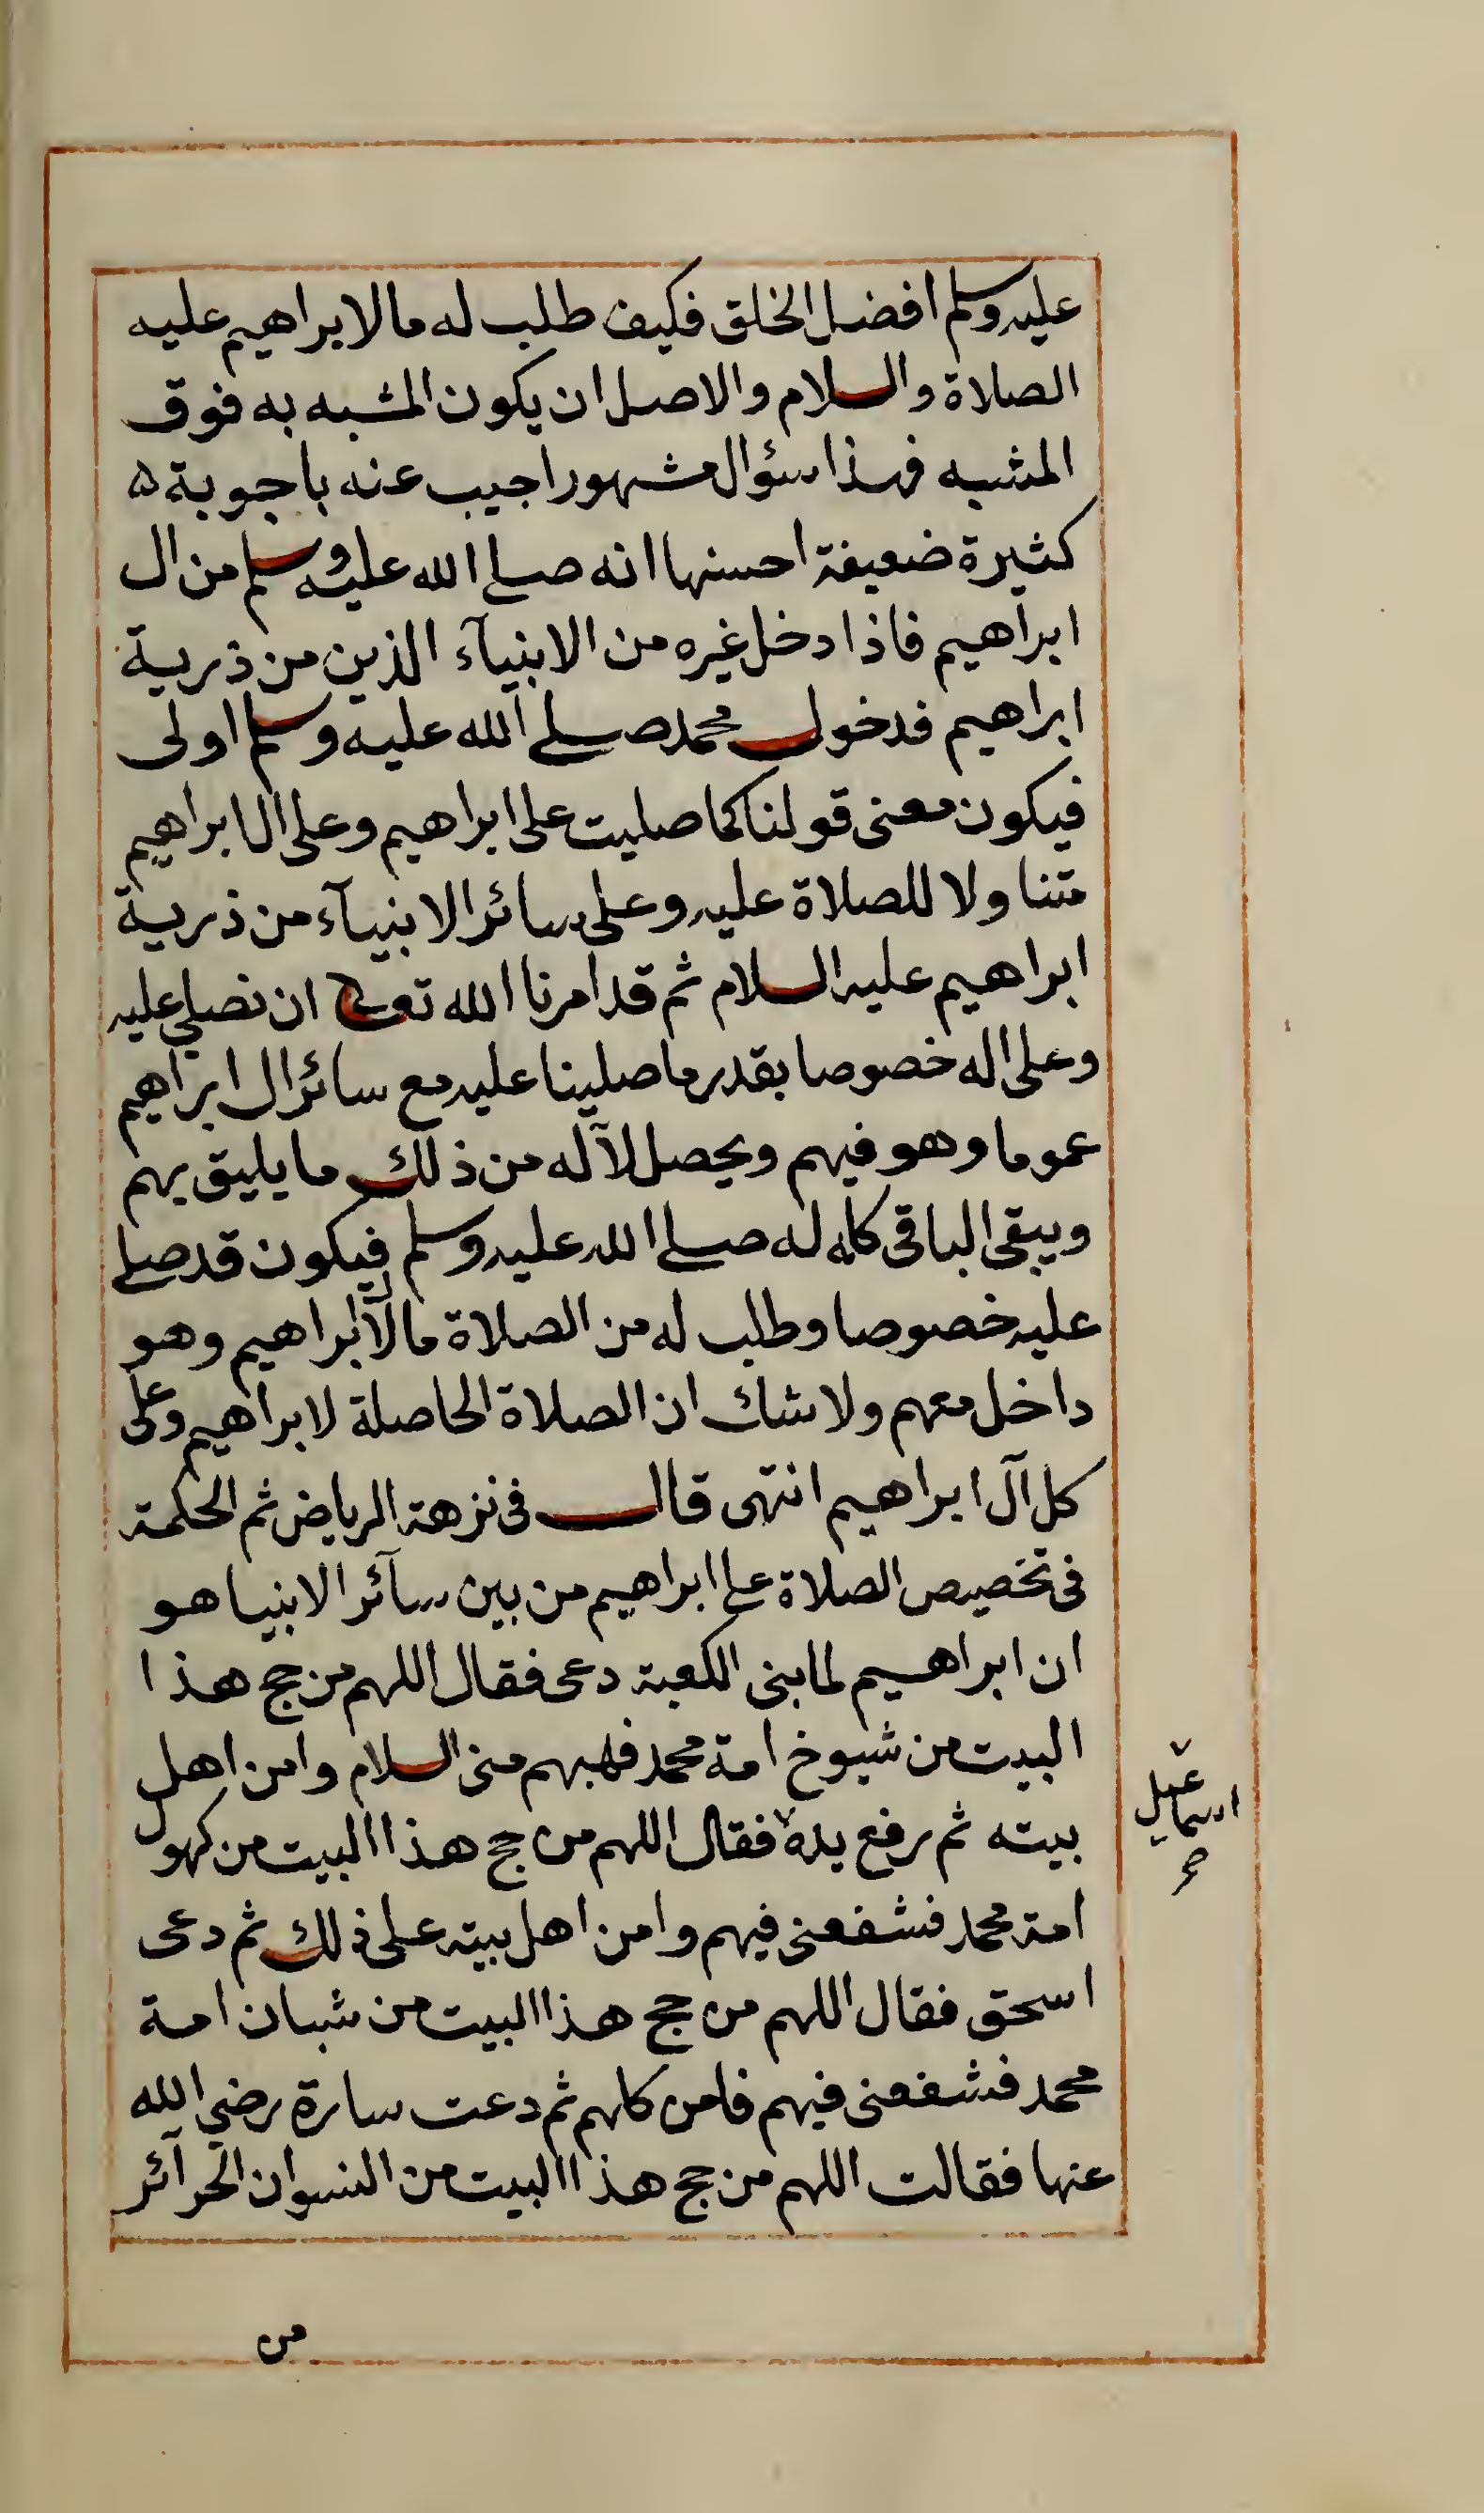 عليه وسلم افضل الخلق فكيف طلب له ما لابراهيم عليه
الصلاة والسلام والاصل ان يكون المشبه به فوق
المشبه فهذا سؤال مشهور اجيب عنه باجوبة ه
كثيرة ضعيفة احسنها انه صلى الله عليه وسلم من ال
ابراهيم فاذا دخل غيره من الانبيآء الذين من ذرية
ابراهيم فدخول محمد صلى الله عليه وسلم اولى
فيكون معنى قولنا كما صليت على ابراهيم وعلى ال ابراهيم
متناولا للصلاة عليه وعلى سائر الانبيآء من ذرية
ابراهيم عليه السلام ثم قد امرنا الله تعالى ان نصلي عليه
وعلى اله خصوصا بقدر ما صلينا عليه مع سائر ال ابراهيم
عموما وهو فيهم ويحصل لآله من ذلك ما يليق بهم
ويبقى الباقى كله له صلى الله عليه وسلم فيكون قد صلى
عليه خصوصا وطلب له من الصلاة ما لآل ابراهيم وهو
داخل معهم ولا شك ان الصلاة الحاصلة لابراهيم وعلى
كل آل ابراهيم انتهى قال فى نزهة الرياض ثم الحكمة
فى تخصيص الصلاة على ابراهيم من بين سآئر الانبيا هو
ان ابراهيم لما بنى الكعبة دعى فقال اللهم من حج هذا
البيت من شيوخ امة محمد فهبهم منى السلام وامن اهل
بيته ثم رفع يده فقال اللهم من حج هذا البيت من كهول
اسماعيل
صح
امة محمد فشفعنى فيهم وامن اهل بيته على ذلك ثم دعى
اسحق فقال اللهم من حج هذا البيت من شبان امة
محمد فشفعنى فيهم فامن كلهم ثم دعت سارة رضي الله
عنها فقالت اللهم من حج هذا البيت من النسوان الحرآئر
من